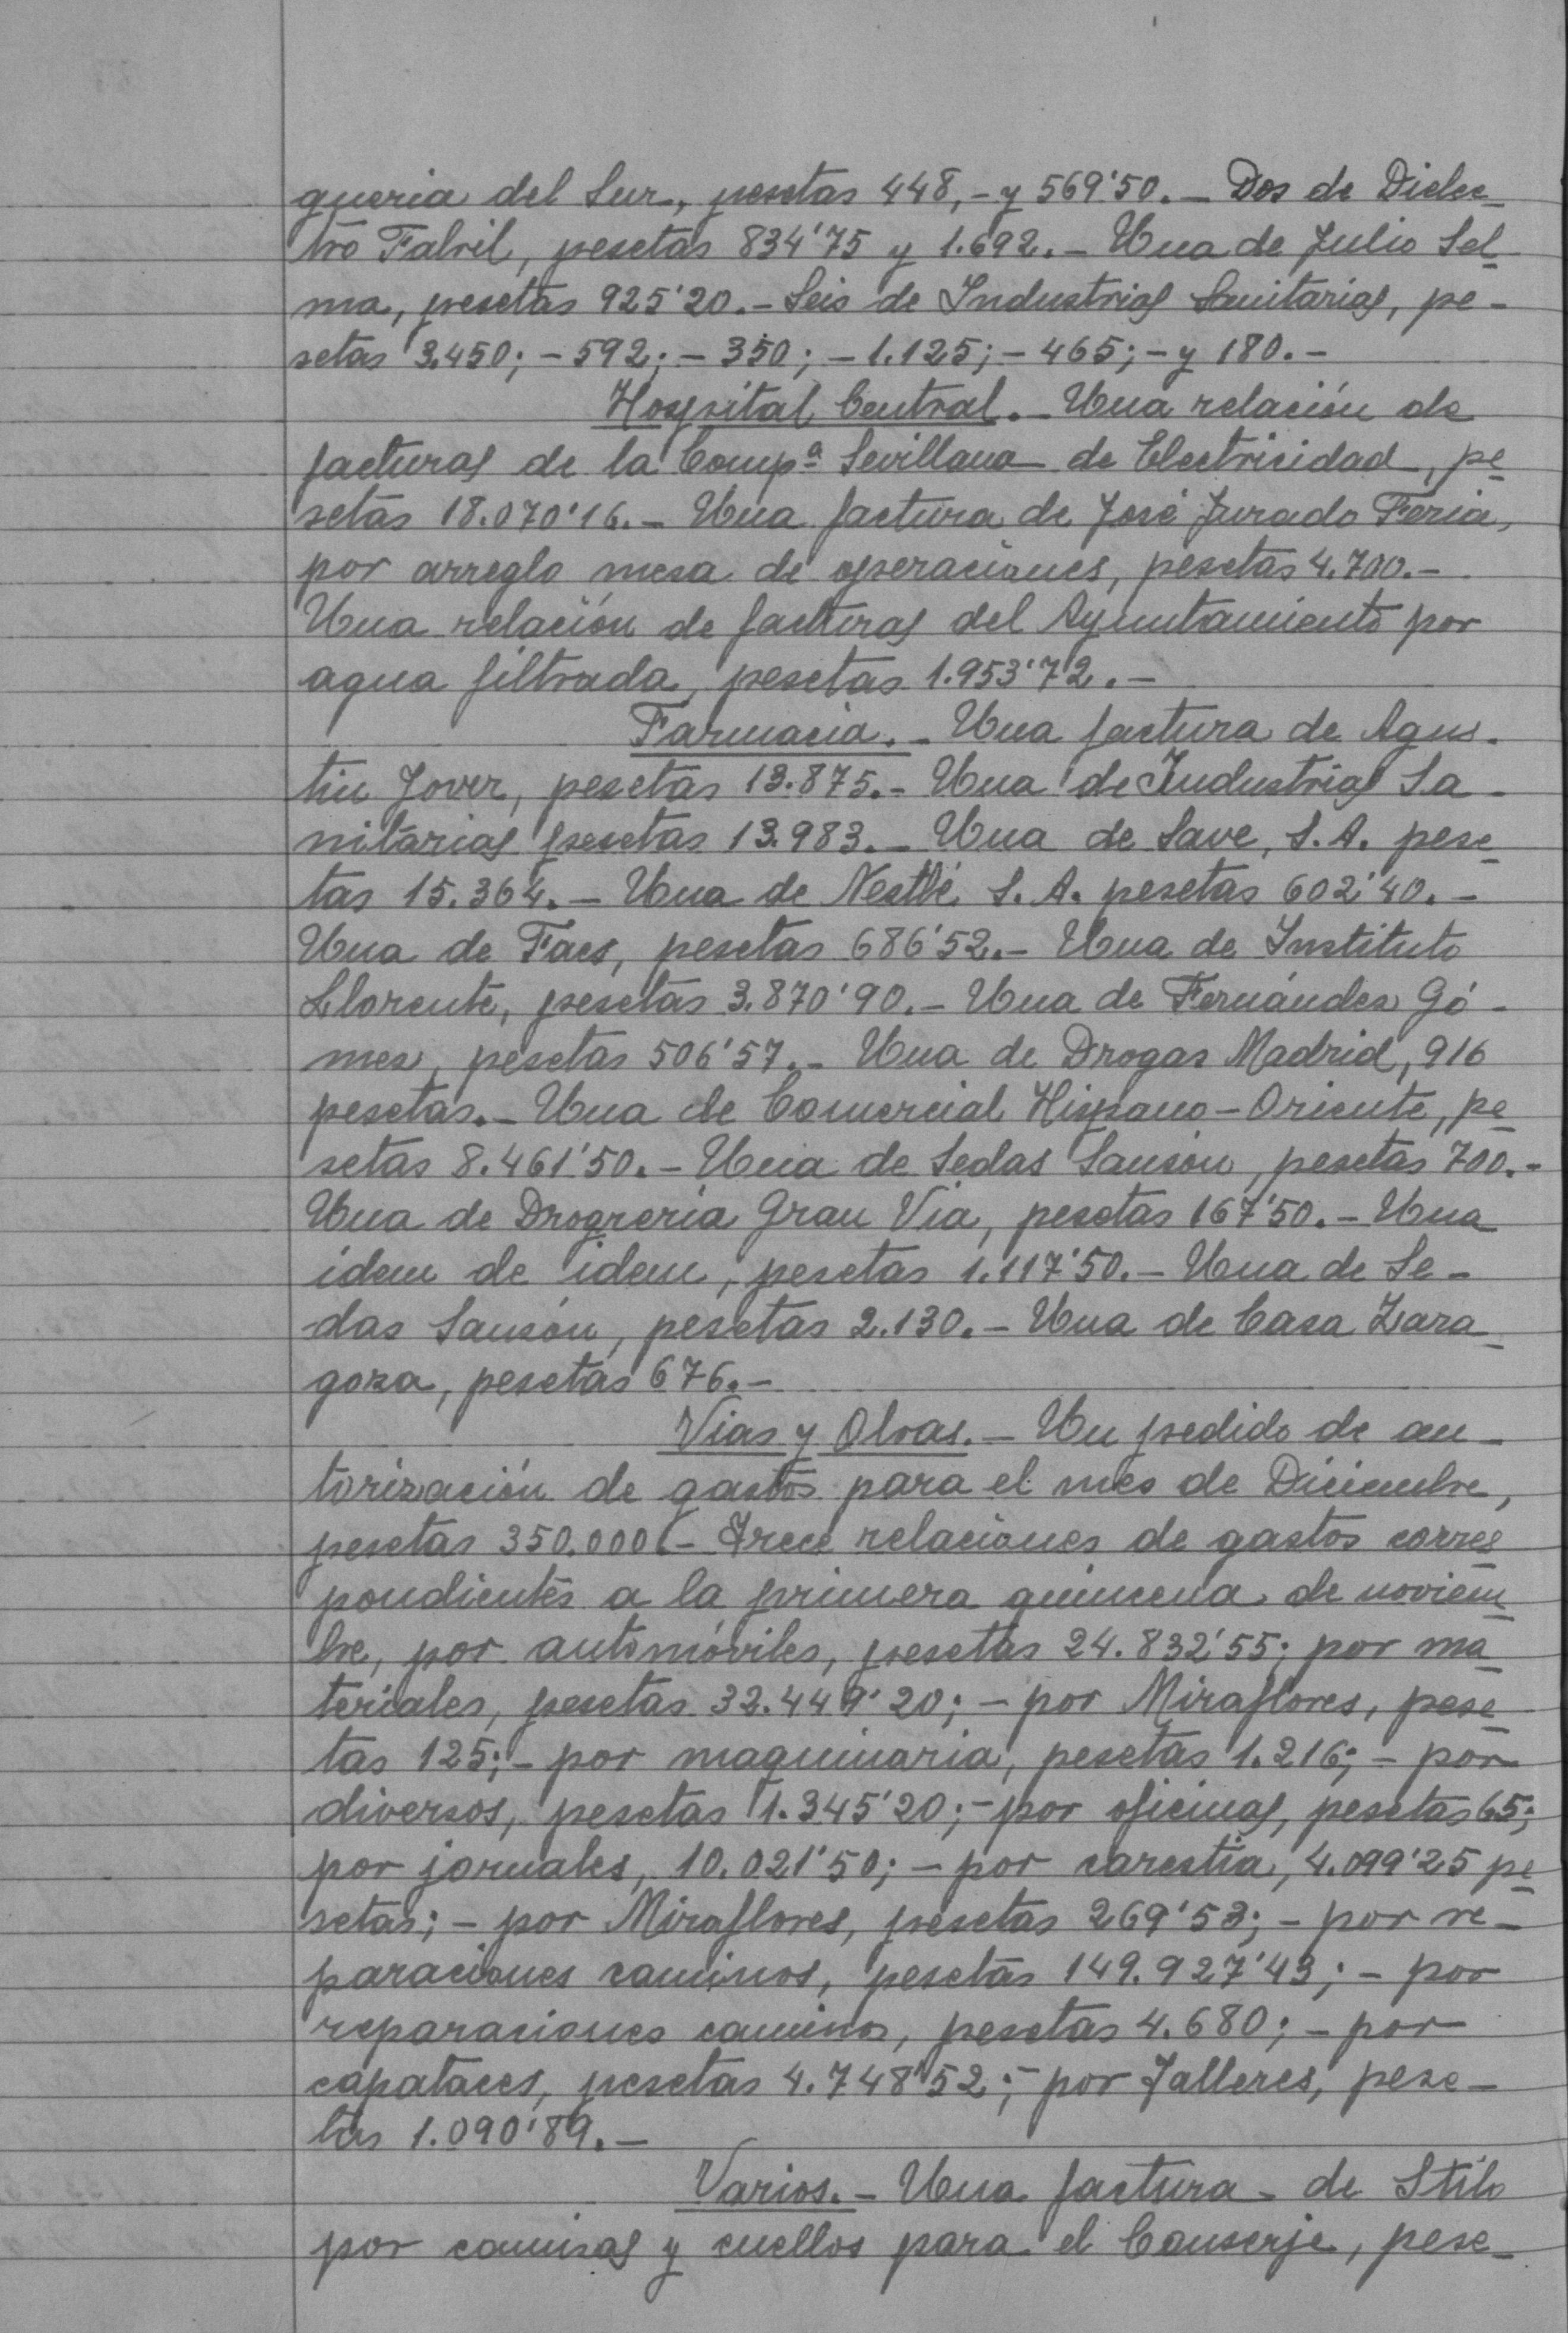 queria del Sur, pesetas 448,- y 569'50.- Dos de Dielec-
tro Fabril, pesetas 834'75 y 1.692.- Una de Julio Sel-
ma, pesetas 925'20.- Seis de Industrias Sanitarias, pe-
setas 3.450;- 592;- 350;- 1.125;- 465;- y 180.-
Hospital Central.- Una relación de
facturas de la Compª Sevillana de Electricidad, pe-
setas 18.070'16.- Una factura de José Jurado Feria,
por arreglo mesa de operaciones, pesetas 4.700.-
Una relación de facturas del Ayuntamiento por
agua filtrada, pesetas 1.953'72.-
Farmacia.- Una factura de Agus-
tin Jover, pesetas 13.875.- Una de Industrias Sa-
nitarias pesetas 13.983.- Una de Save, S.A. pese-
tas 15.364.- Una de Nestlé S.A. pesetas 602'40.-
Una de Faes, pesetas 686'52.- Una de Instituto
Llorente, pesetas 3.870'90.- Una de Fernández Gó-
mez, pesetas 506'57.- Una de Drogas Madrid, 916
pesetas.- Una de Comercial Hispano-Oriente, pe-
setas 8.461'50.- Una de Sedas Sansón, pesetas 700.-
Una de Drogrería Gran Via, pesetas 167'50.- Una
idem de idem, pesetas 1.117'50.- Una de Se-
das Sansón, pesetas 2.130.- Una de Casa Zara-
goza, pesetas 676.-
Vias y Obras.- Un pedido de au-
torización de gastos para el mes de Diciembre,
pesetas 350.000.- Trece relaciones de gastos corres-
pondientes a la primera quincena de noviem-
bre, por automóviles, pesetas 24.832'55; por ma-
teriales, pesetas 32.449'20;- por Miraflores, pese-
tas 125;- por maquinaria, pesetas 1.216;- por
diversos, pesetas 1.345'20;- por oficinas, pesetas 65;
por jornales, 10.021'50;- por carestía, 4.099'25 pe-
setas;- por Miraflores, pesetas 269'53;- por re-
paraciones caminos, pesetas 149.927'43;- por
reparaciones caminos, pesetas 4.680;- por
capataces, pesetas 4.748'52;- por Talleres, pese-
tas 1.090'89.-
Varios.- Una factura de Stilo
por camisas y cuellos para el Conserje, pese-